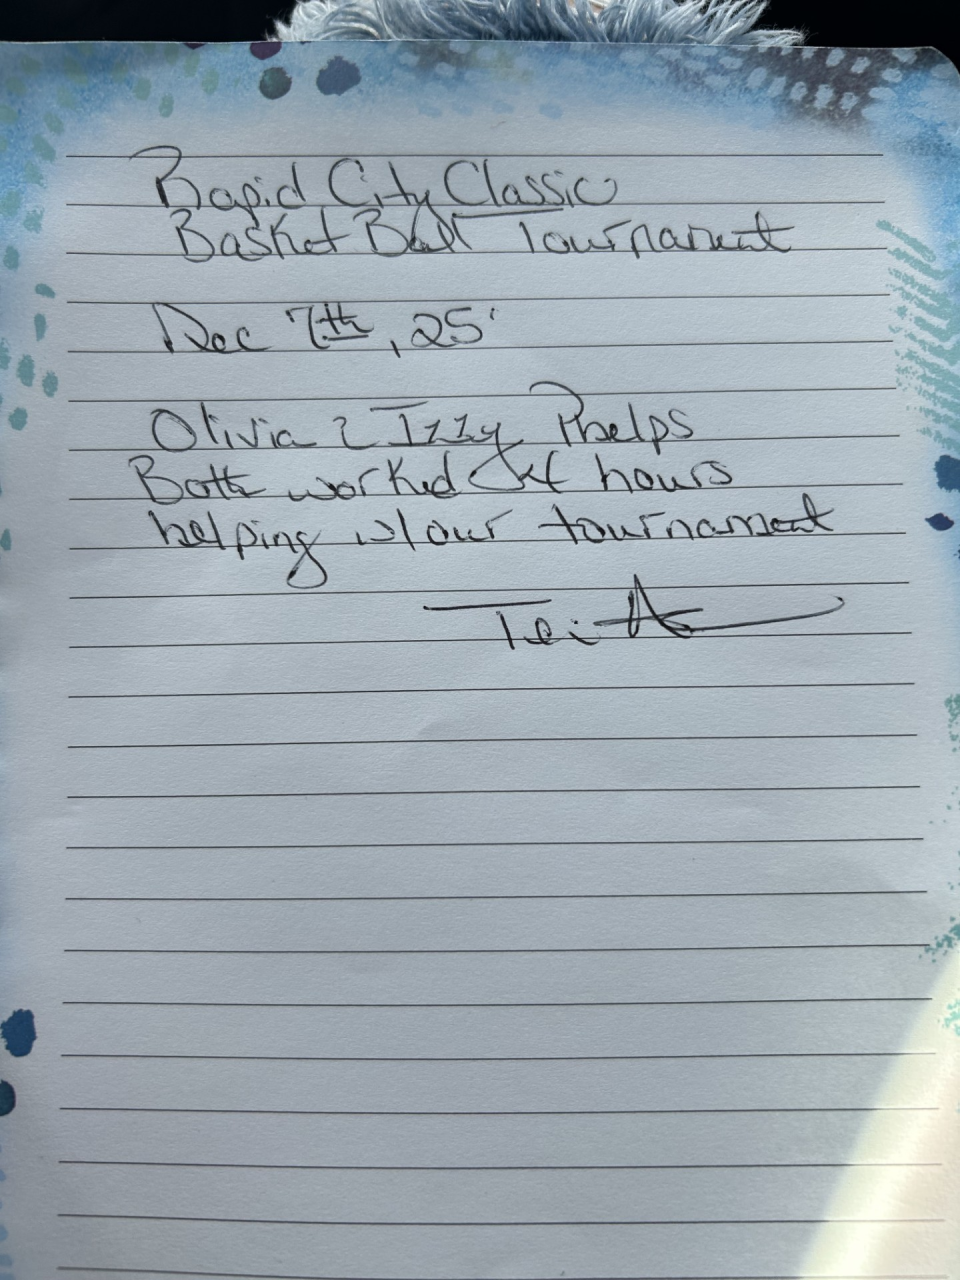 Rapid City Classic
Basket Ball Tournament
Dec 7th, 25'
Olivia & Izzy Phelps
Both worked hours
helping w/ our tournament